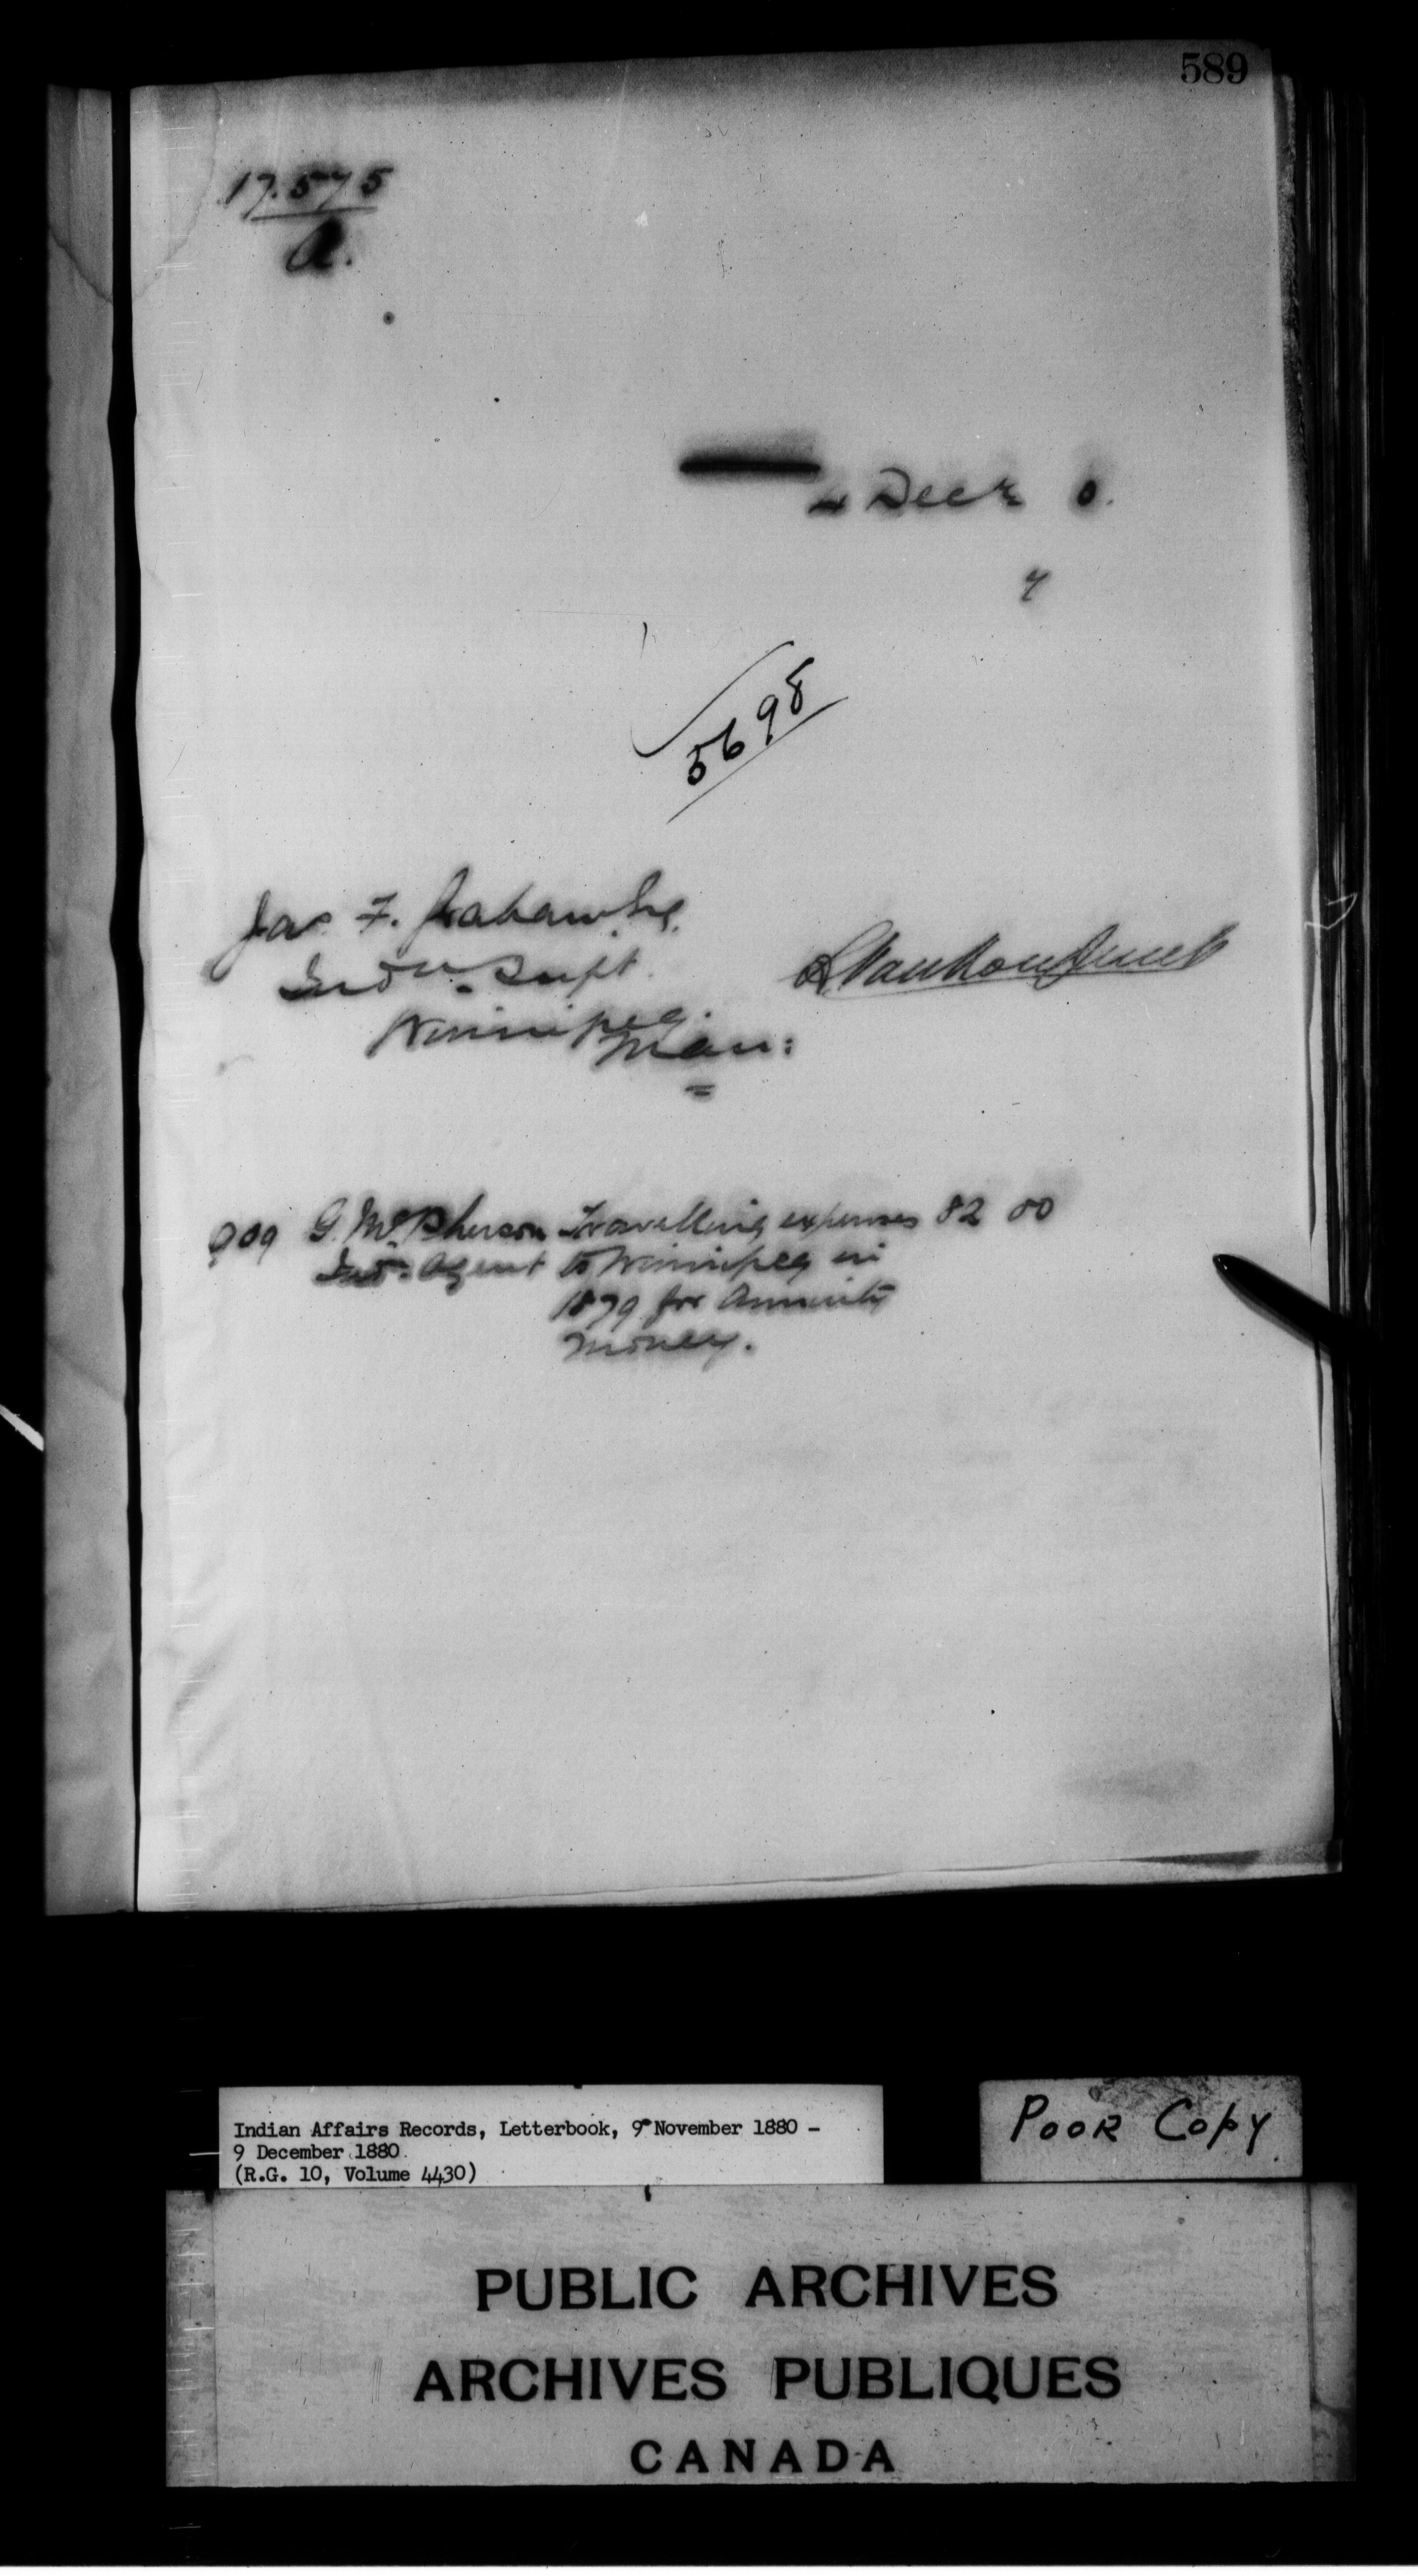 589
17.575
A.
4 Decr 0.
7
5698
Jas. F. Graham Esq.
Indn. Supt.
Winnipeg.
Man:
L Vankoughnet
909 G. McPherson Travelling expenses 82 00
Ind. Agent to Winnipeg in
1879 for Annuity
Money.
Indian Affairs Records, Letterbook, 9 November 1880 -
9 December 1880
(R.G. 10, Volume 4430)
Poor Copy
PUBLIC ARCHIVES
ARCHIVES PUBLIQUES
CANADA